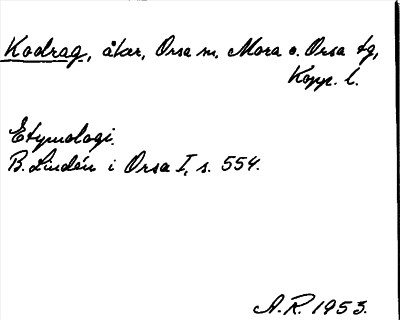 Kodrag, åker, Orsa sn, Mora o. Orsa tg,
Kopp. l.
Etymologi.
B. Lindén i Orsa I, s. 554.
A.R. 1953.